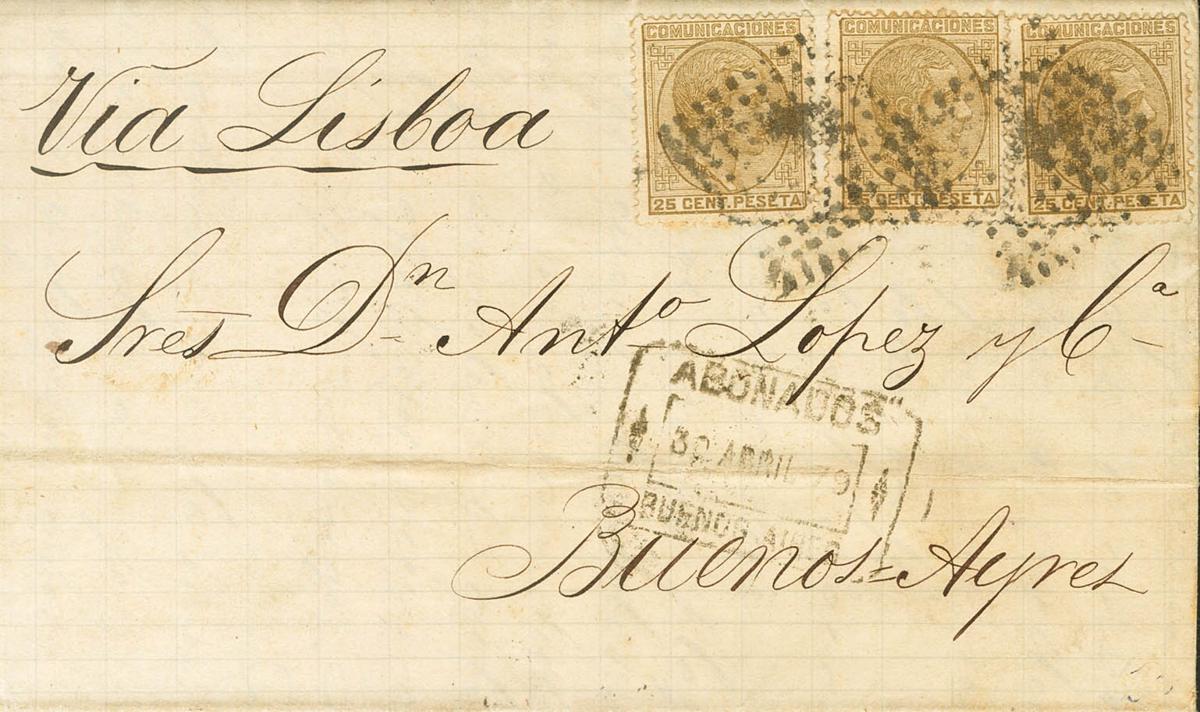 COMUNICACIONES COMUNICACIONES COMUNICACIONES
25 CENT. PESETA 25 CENT. PESETA 25 CENT. PESETA
Via Lisboa
Sres Dn Anto Lopez y Ca
ABONADOS
30 ABRIL 79
BUENOS AIRES
Buenos-Ayres